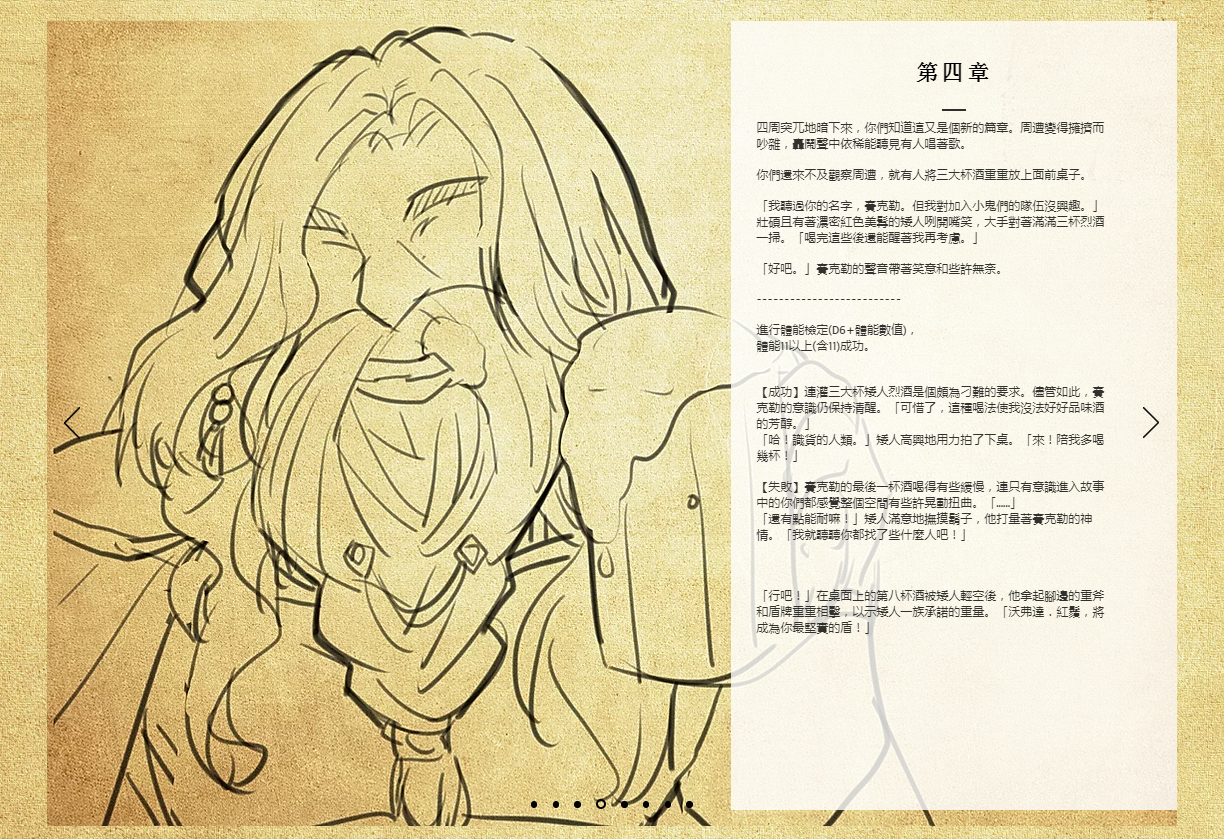 第四章
四周突兀地暗下來，你們知道這又是個新的篇章。周遭變得擁擠而
吵雜，轟鬧聲中依稀能聽見有人唱著歌。
你們還來不及觀察周遭，就有人將三大杯酒重重放上面前桌子。
「我聽過你的名字，賽克勒。但我對加入小鬼們的隊伍沒興趣。」
壯碩且有著濃密紅色美髯的矮人咧開嘴笑，大手對著滿滿三杯烈酒
一掃。「喝完這些後還能醒著我再考慮。」
「好吧。」賽克勒的聲音帶著笑意和些許無奈。
--------------------------
進行體能檢定(D6+體能數值)，
體能11以上(含11)成功。
【成功】連灌三大杯矮人烈酒是個頗為刁難的要求。儘管如此，賽
克勒的意識仍保持清醒。「可惜了，這種喝法使我沒法好好品味酒
的芳醇。」
「哈！識貨的人類。」矮人高興地用力拍了下桌。「來！陪我多喝
幾杯！」
【失敗】賽克勒的最後一杯酒喝得有些緩慢，連只有意識進入故事
中的你們都感覺整個空間有些許晃動扭曲。「......」
「還有點能耐嘛！」矮人滿意地撫摸鬍子，他打量著賽克勒的神
情。「我就聽聽你都找了些什麼人吧！」
「行吧！」在桌面上的第八杯酒被矮人輕空後，他拿起腳邊的重斧
和盾牌重重相擊，以示矮人一族承諾的重量。「沃弗達．紅鬚，將
成為你最堅實的盾！」